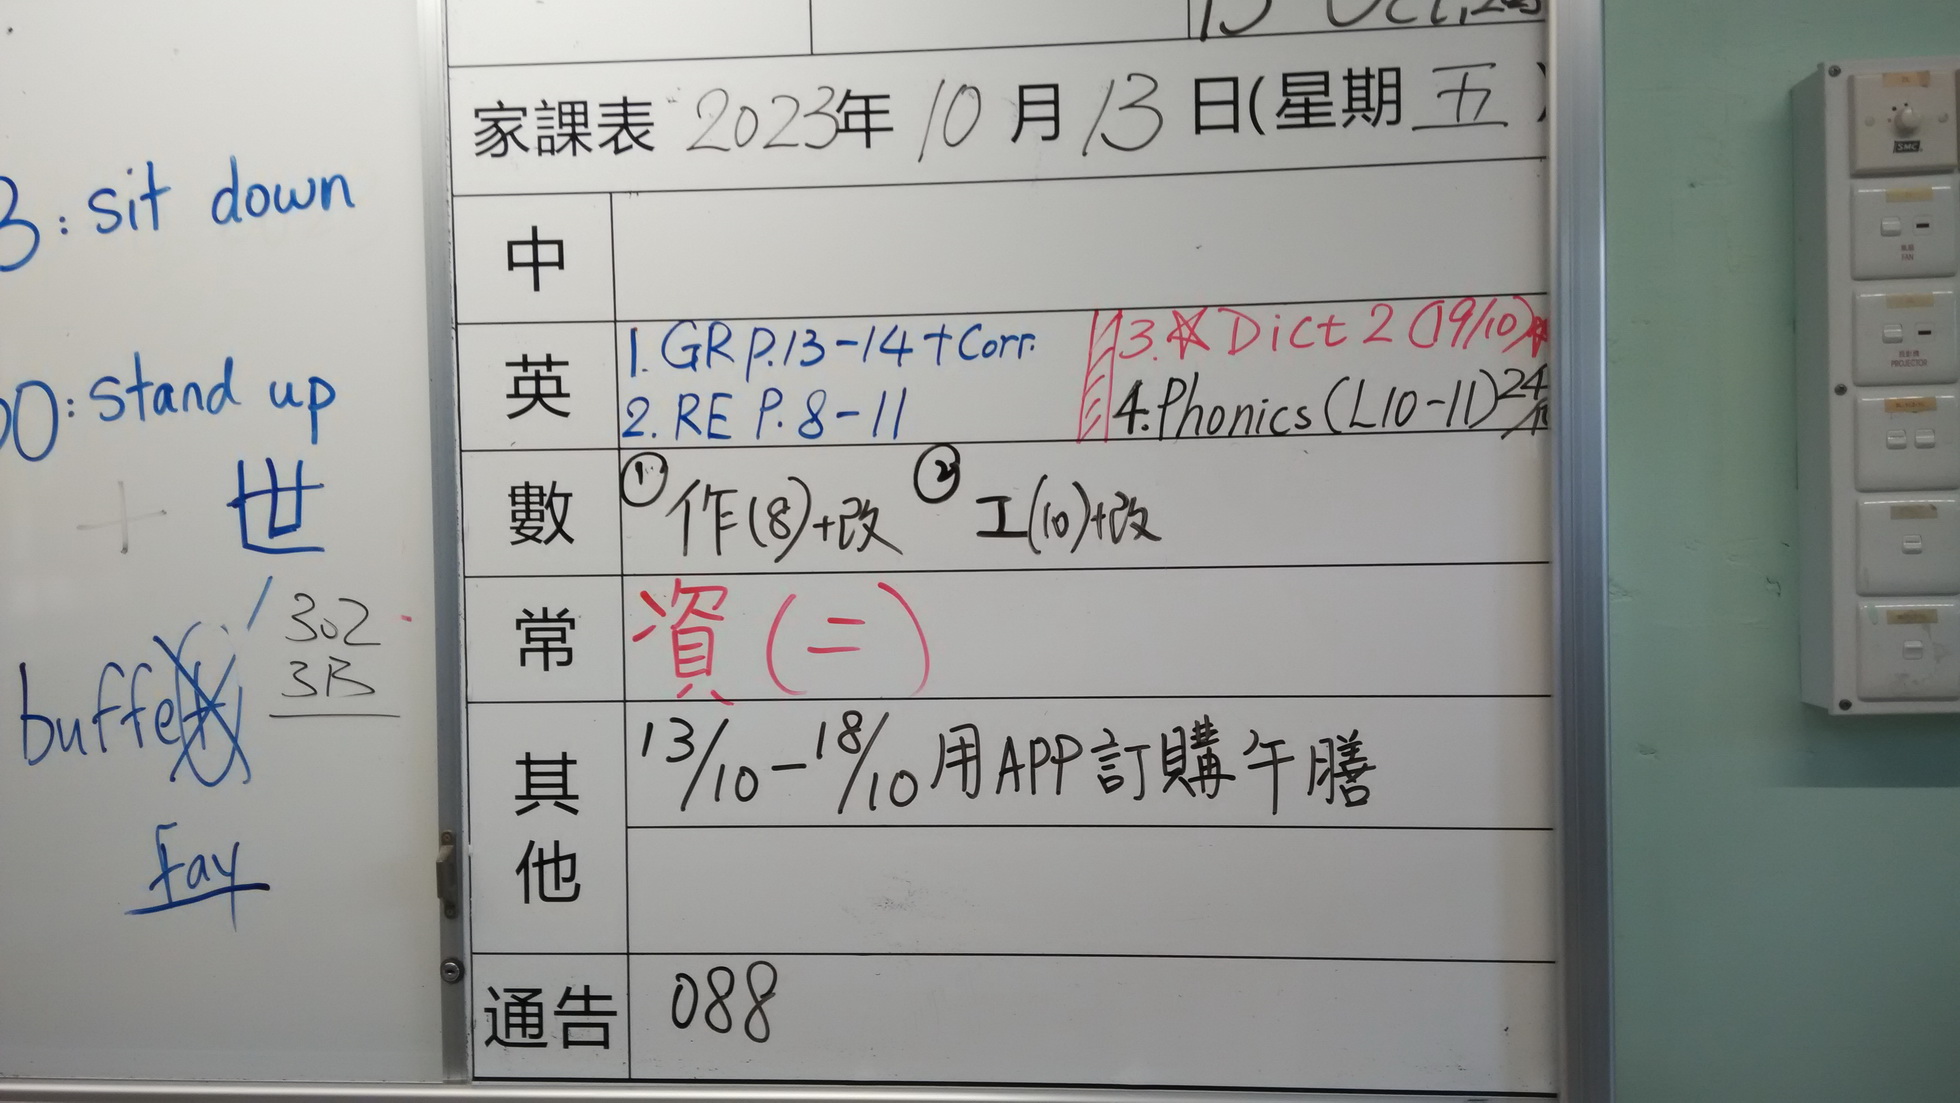 3: sit down
00: stand up
世
302
3B
buffet
Fay
家課表 2023年 10 月 13 日(星期 五 )
中
英
1. GR P.13-14 + Corr.
2. RE P. 8-11
3. ☆ Dict 2 (19/10)
4. Phonics (L10-11) 24/10
數
① 作(8)+改 ② 工(10)+改
常
資(二)
其他
13/10 - 18/10 用APP訂購午膳
通告
088
SMC
FAN
PROJECTOR